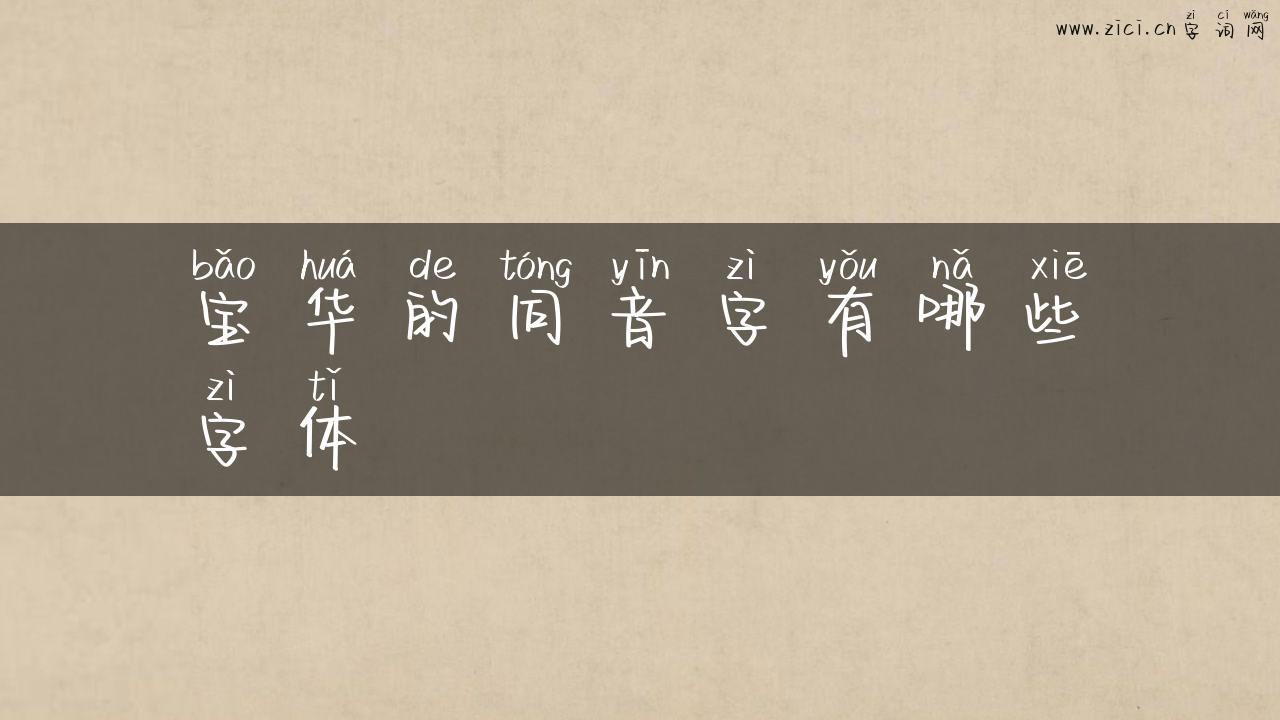 zì cí wǎng
www.zici.cn 字词网
bǎo huá de tóng yīn zì yǒu nǎ xiē
宝华的同音字有哪些
zì tǐ
字体